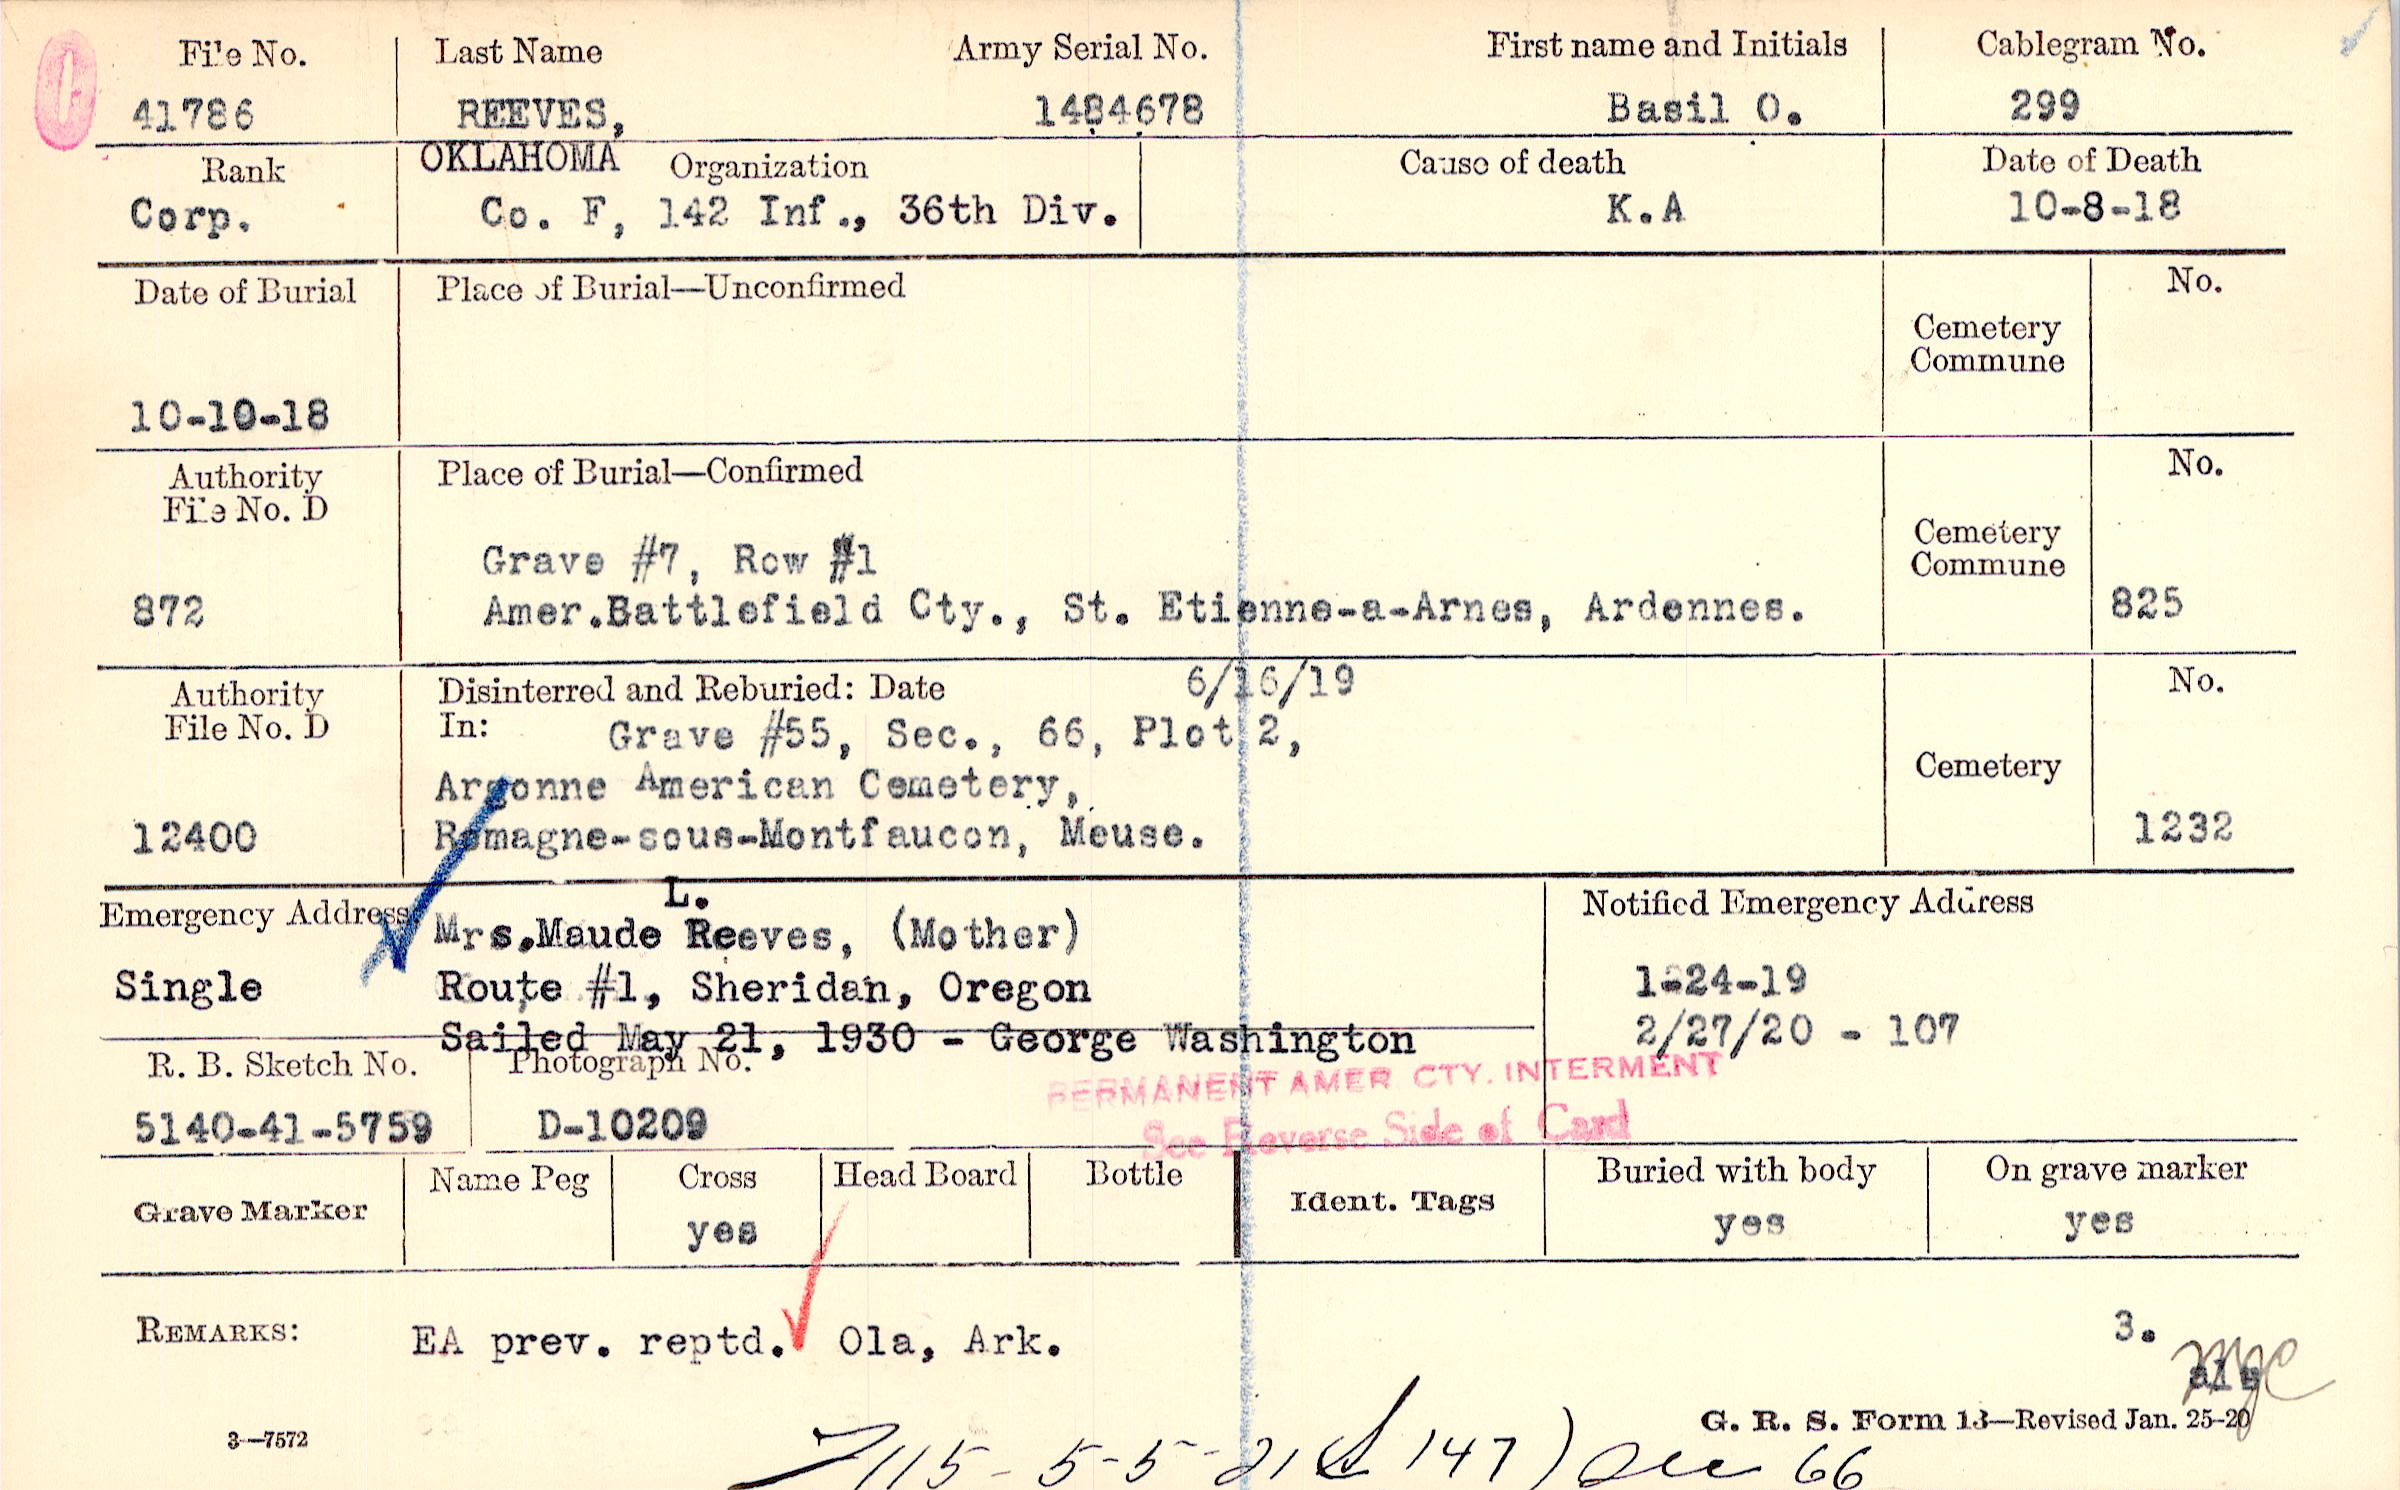 File No. Last Name Army Serial No. First name and Initials Cablegram No.
41786 REEVES, 1484678 Basil O. 299
Rank OKLAHOMA Organization Cause of death Date of Death
Corp. Co. F, 142 Inf., 36th Div. K.A 10-8-18
Date of Burial Place of Burial—Unconfirmed No.
Cemetery
Commune
10-10-18
Authority Place of Burial—Confirmed No.
File No. D
Cemetery
Commune
Grave #7, Row #1
872 Amer.Battlefield Cty., St. Etienne-a-Arnes, Ardennes. 825
Authority Disinterred and Reburied: Date 6/16/19 No.
File No. D In: Grave #55, Sec., 66, Plot 2,
Argonne American Cemetery, Cemetery
12400 Romagne-sous-Montfaucon, Meuse. 1232
L.
Emergency Address Mrs.Maude Reeves, (Mother) Notified Emergency Address
Single Route #1, Sheridan, Oregon 1-24-19
Sailed May 21, 1930 - George Washington 2/27/20 - 107
R. B. Sketch No. Photograph No.
PERMANENT AMER CTY. INTERMENT
5140-41-5759 D-10209 See Reverse Side of Card
Grave Marker Name Peg Cross Head Board Bottle Ident. Tags Buried with body On grave marker
yes yes yes
REMARKS: EA prev. reptd. Ola, Ark. 3.
G. R. S. Form 13—Revised Jan. 25-20
3—7572
115-5-5-21 147) Sec 66